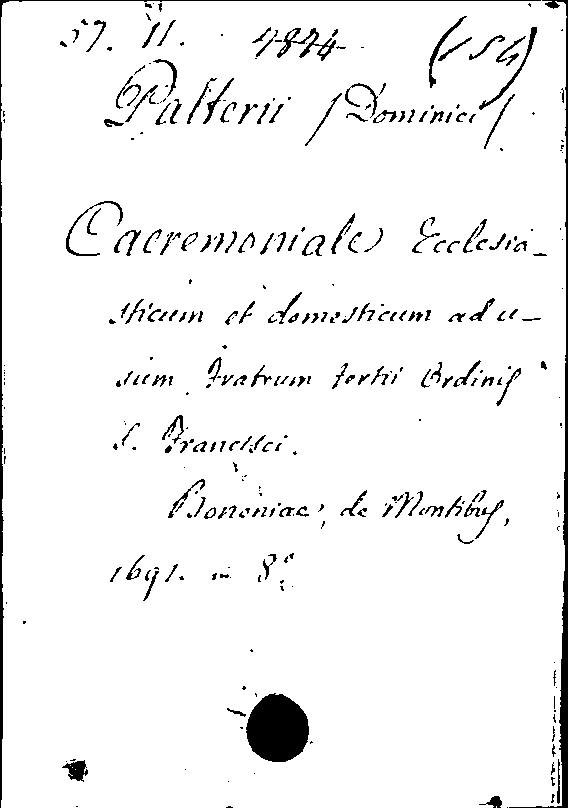 57. 11.
Palterii /Dominici/
Caeremoniale Ecclesia-
sticum et domesticum ad u-
sum Fratrum tertii Ordinis
S. Francisci.
Bononiae, de Montibus,
1691. in 8°